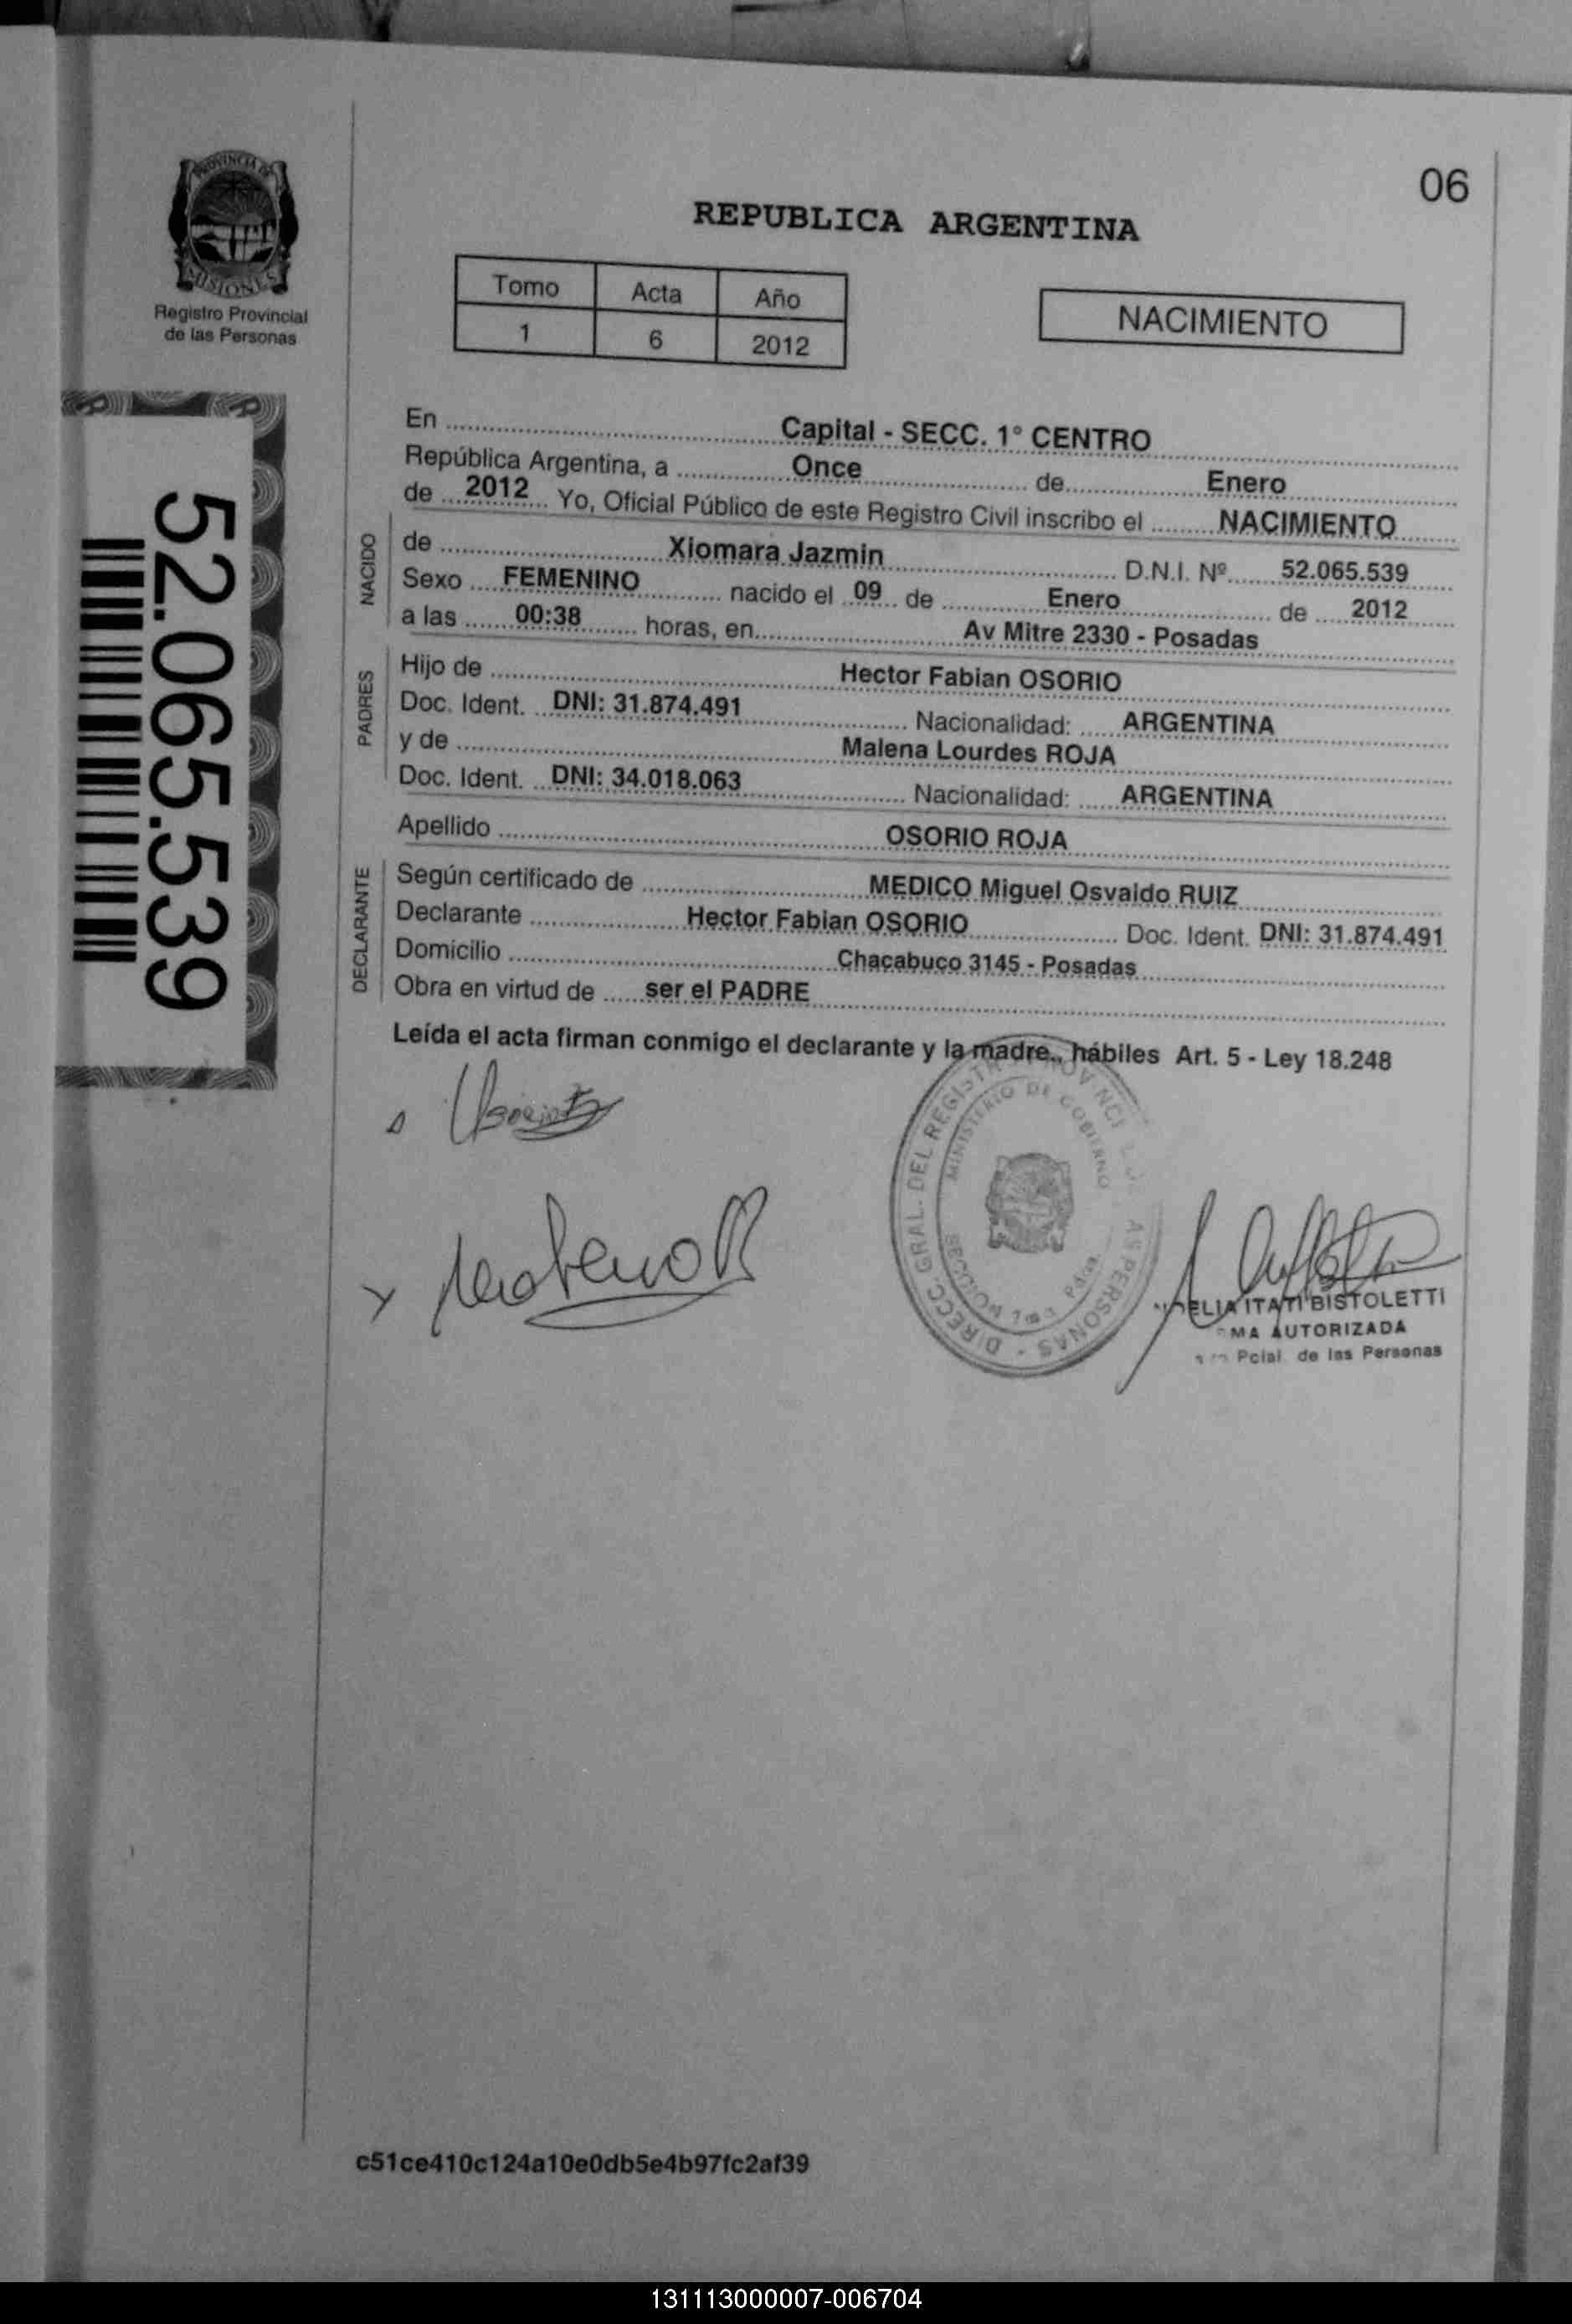 PROVINCIA DE
MISIONES
Registro Provincial
de las Personas
52.065.539
06
REPUBLICA ARGENTINA
Tomo Acta Año
1 6 2012
NACIMIENTO
En Capital - SECC. 1° CENTRO
República Argentina, a Once de Enero
de 2012 Yo, Oficial Público de este Registro Civil inscribo el NACIMIENTO
NACIDO
de Xiomara Jazmin D.N.I. Nº 52.065.539
Sexo FEMENINO nacido el 09 de Enero de 2012
a las 00:38 horas, en Av Mitre 2330 - Posadas
PADRES
Hijo de Hector Fabian OSORIO
Doc. Ident. DNI: 31.874.491 Nacionalidad: ARGENTINA
y de Malena Lourdes ROJA
Doc. Ident. DNI: 34.018.063 Nacionalidad: ARGENTINA
Apellido OSORIO ROJA
DECLARANTE
Según certificado de MEDICO Miguel Osvaldo RUIZ
Declarante Hector Fabian OSORIO Doc. Ident. DNI: 31.874.491
Domicilio Chacabuco 3145 - Posadas
Obra en virtud de ser el PADRE
Leída el acta firman conmigo el declarante y la madre., hábiles Art. 5 - Ley 18.248
DIRECC. GRAL. DEL REGISTR PERSONAS
MINISTERIO DE GOBIERNO
ITATI BISTOLETTI
MA AUTORIZADA
Pcial. de las Personas
c51ce410c124a10e0db5e4b97fc2af39
131113000007-006704